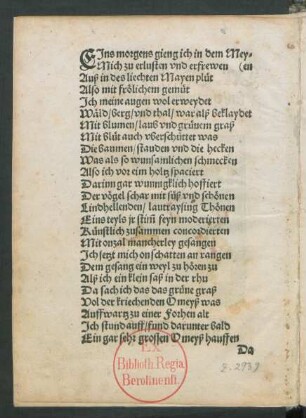 EIns morgens gieng ich in dem Mey-
Mich zu erlusten vnd erfrewen (en
Auß in des liechten Mayen plüt
Also mit frölichem gemüt
Ich meine augen wol erweydet
Wäld/berg/vnd thal/ war alß beklaydet
Mit blumen/laub vnd grünem graß
Mit blüt auch vberschüttet was
Die baumen/stauden vnd die hecken
Was als so wunsamlichen schmecken
Also ich vor ein holtz spaciert
Darinn gar wunnigklich hoffiert
Der vögel schar mit süß vnd schönen
Lindhellenden/ lautraysing Thönen
Eins teyls jr stim̃ feyn moderirten
Künstlich zusammen concordierten
Mit onzal mancherley gesangen
Ich setzt mich on schatten an rangen
Dem gesang ein weyl zu hören zu
Alß ich ein klein saß in der rhu
Da sach ich das das grüne graß
Vol der kriechenden Omeyß was
Auffwartz zu einer Forhen alt
Ich stund auff/fund darunter bald
Ein gar sehr grossen Omeyß hauffen
Da
EX
Biblioth. Regia
Berolinensi.